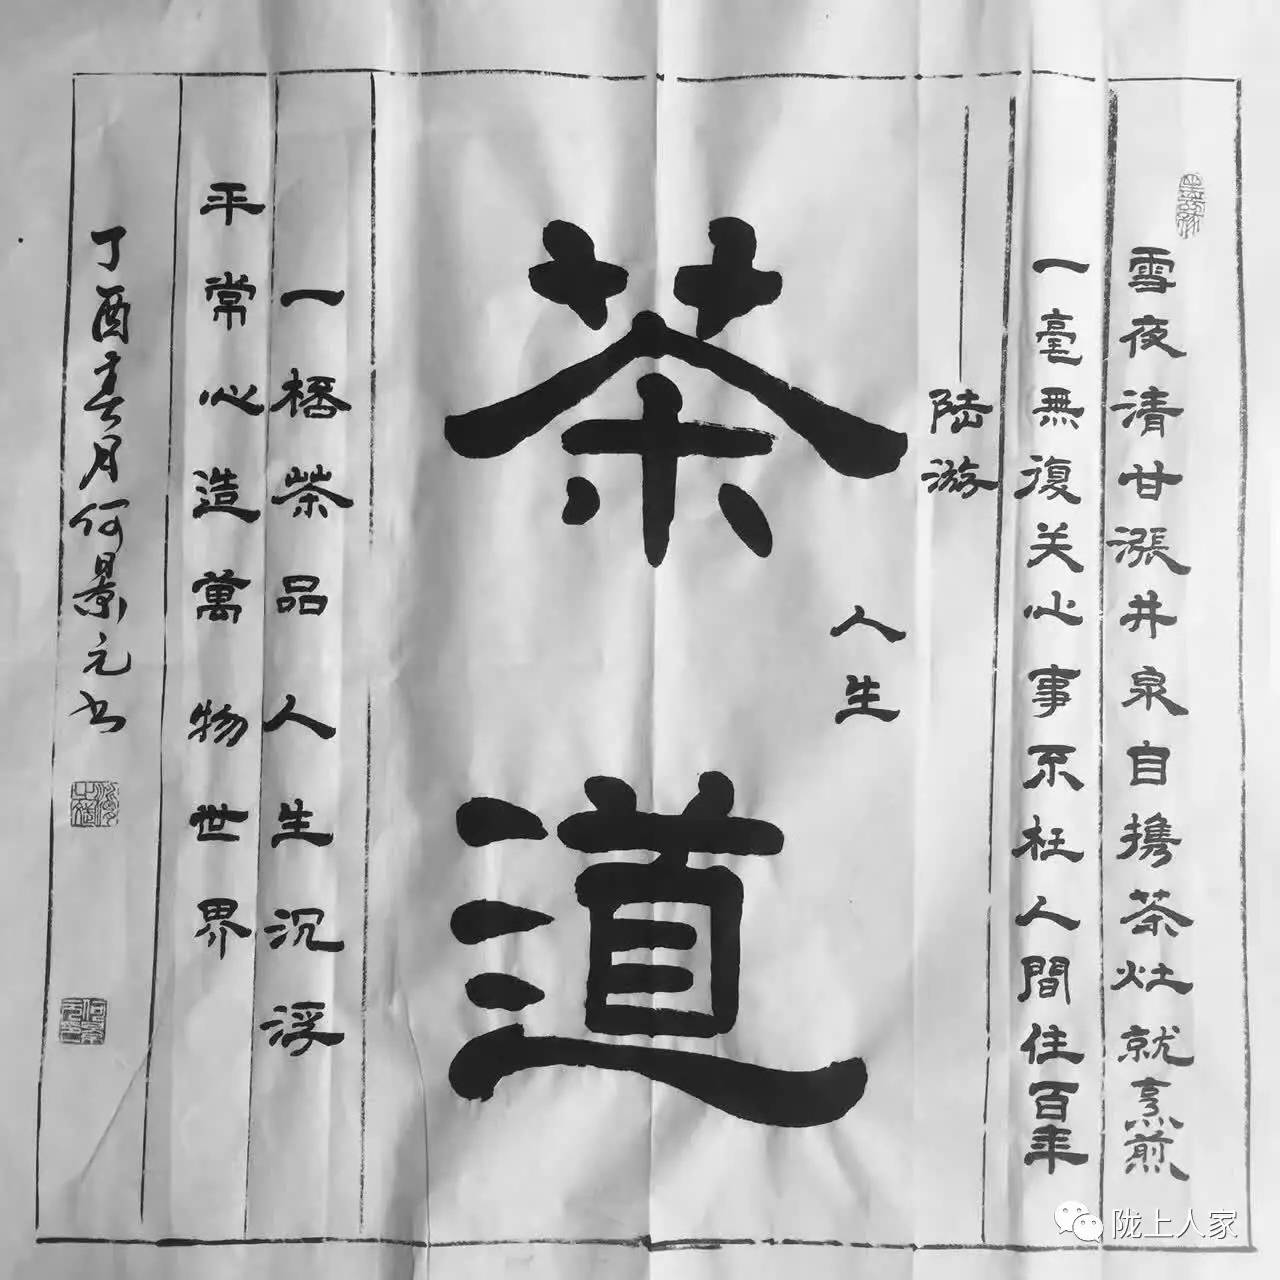 雪夜清甘漲井泉自携茶灶就烹煎
一毫無復关心事不枉人間住百年
陆游
茶道
人生
一桮茶品人生沉浮
平常心造萬物世界
丁酉春月何景元书
陇上人家